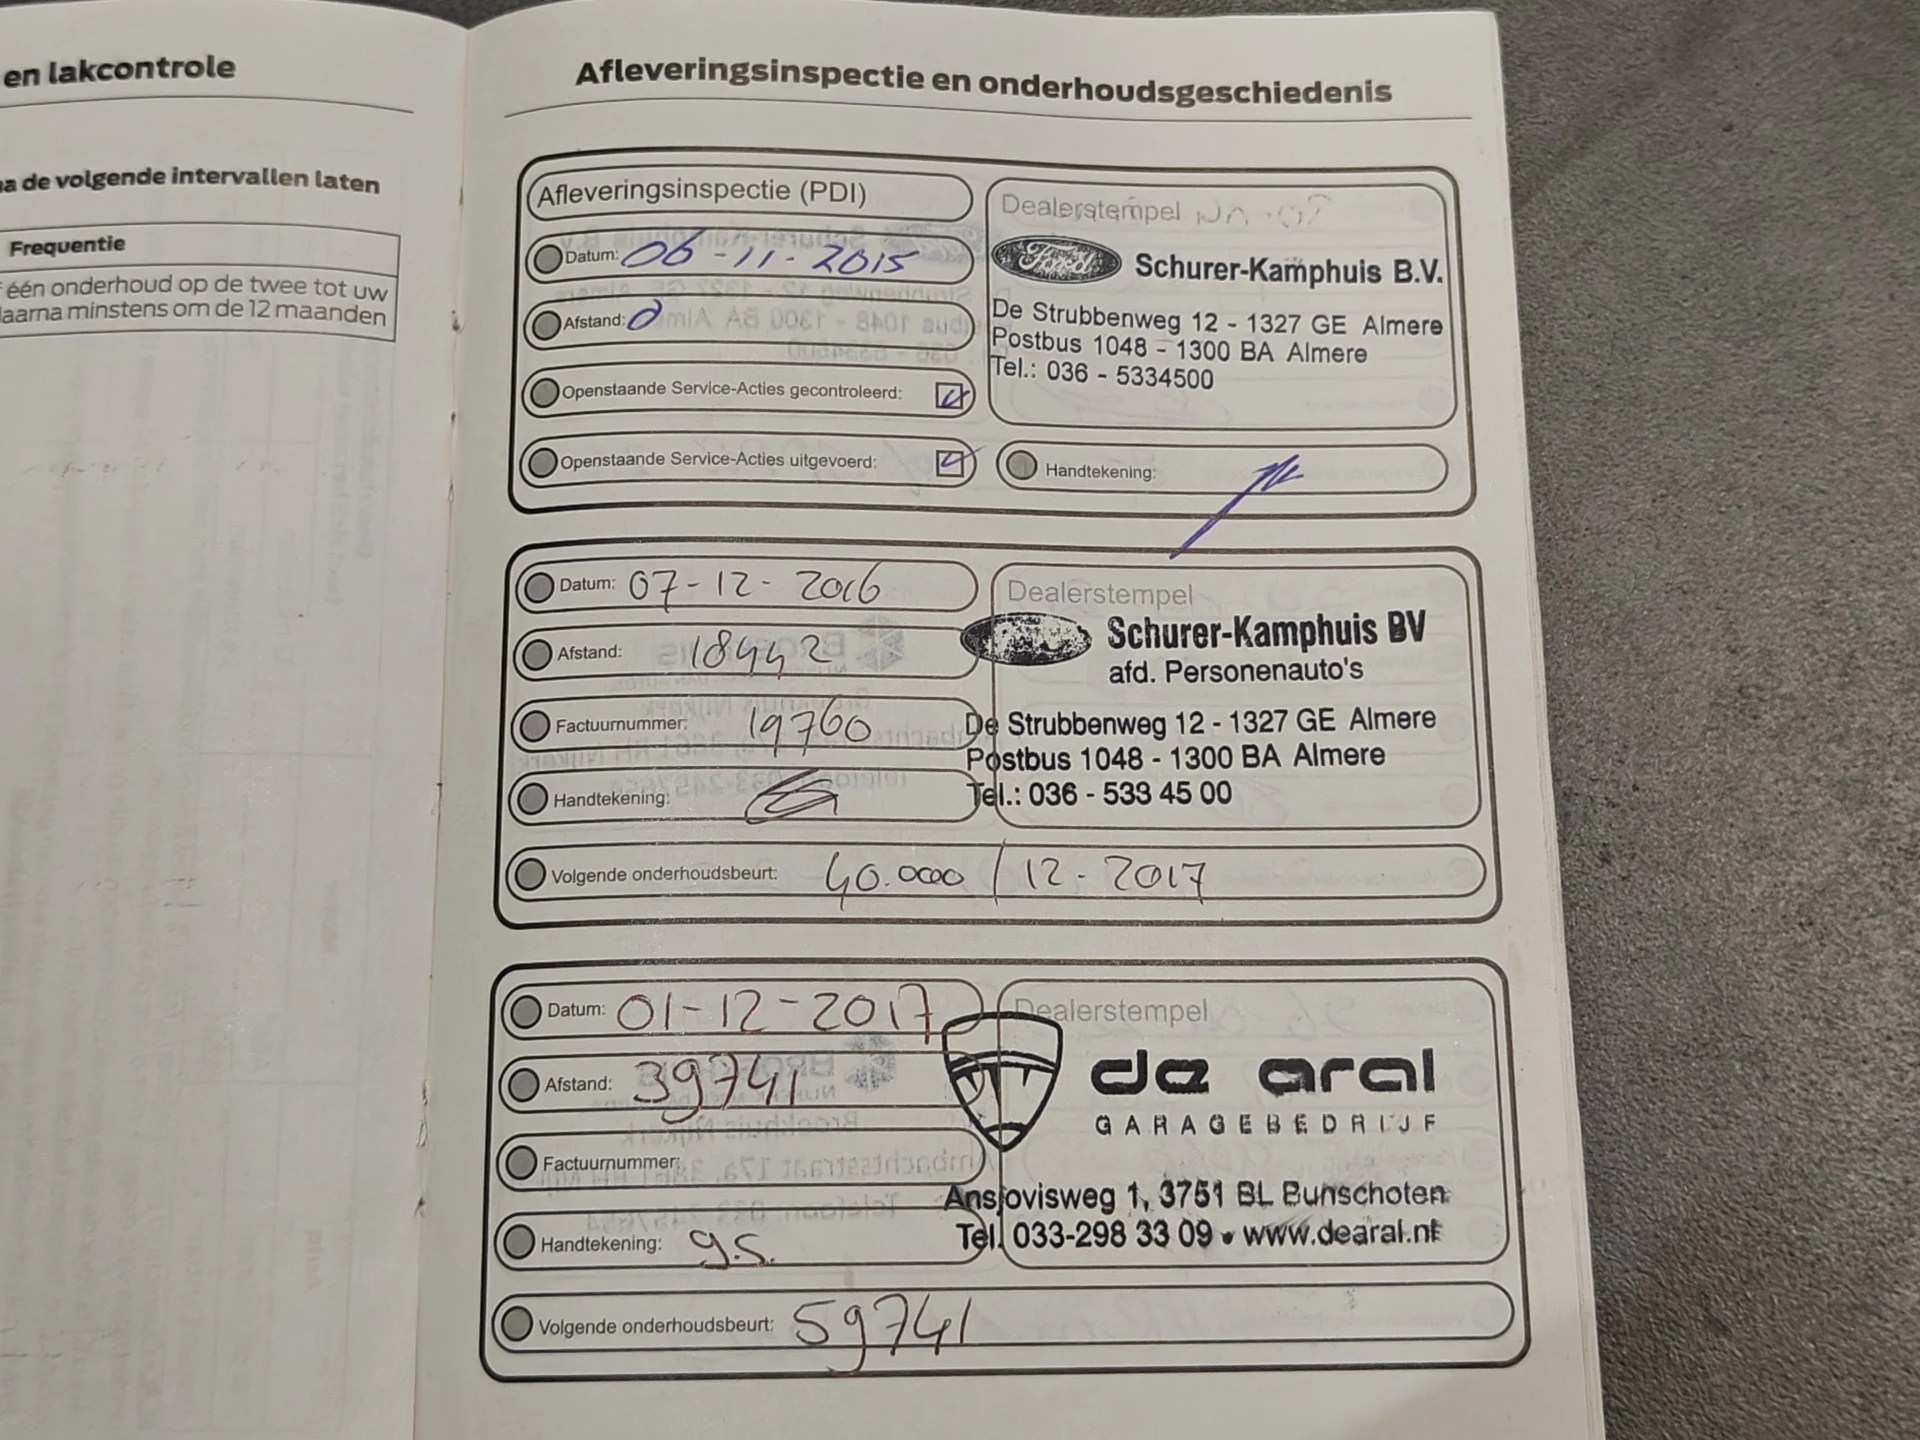 en lakcontrole
na de volgende intervallen laten
Frequentie
één onderhoud op de twee tot uw
daarna minstens om de 12 maanden
Afleveringsinspectie en onderhoudsgeschiedenis
Afleveringsinspectie (PDI)
Datum: 06-11-2015
Afstand: 0
Openstaande Service-Acties gecontroleerd:
Openstaande Service-Acties uitgevoerd:
Dealerstempel
Ford Schurer-Kamphuis B.V.
De Strubbenweg 12 - 1327 GE Almere
Postbus 1048 - 1300 BA Almere
Tel.: 036 - 5334500
Handtekening:
Datum: 07-12-2016
Afstand: 18442
Factuurnummer: 19760
Handtekening:
Dealerstempel
Schurer-Kamphuis BV
afd. Personenauto's
De Strubbenweg 12 - 1327 GE Almere
Postbus 1048 - 1300 BA Almere
Tel.: 036 - 533 45 00
Volgende onderhoudsbeurt: 40.000 / 12-2017
Datum: 01-12-2017
Afstand: 39741
Factuurnummer:
Handtekening: g.s.
Dealerstempel
de aral
GARAGEBEDRIJF
Ansjovisweg 1, 3751 BL Bunschoten
Tel. 033-298 33 09 • www.dearal.nl
Volgende onderhoudsbeurt: 59741